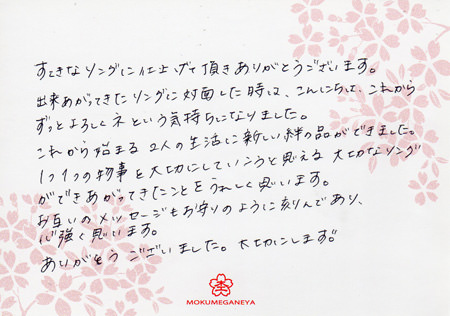 すてきなリングに仕上げて頂きありがとうございます。
出来あがってきたリングに対面した時は、こんにちはって、これから
ずっとよろしくネという気持ちになりました。
これから始まる2人の生活に新しい絆の品ができました。
1つ1つの物事を大切にしていこうと思える大切なリング
ができあがってきたことをうれしく思います。
お互いのメッセージもお守りのように刻んであり、
心強く思います。
ありがとうございました。大切にします。
MOKUMEGANEYA